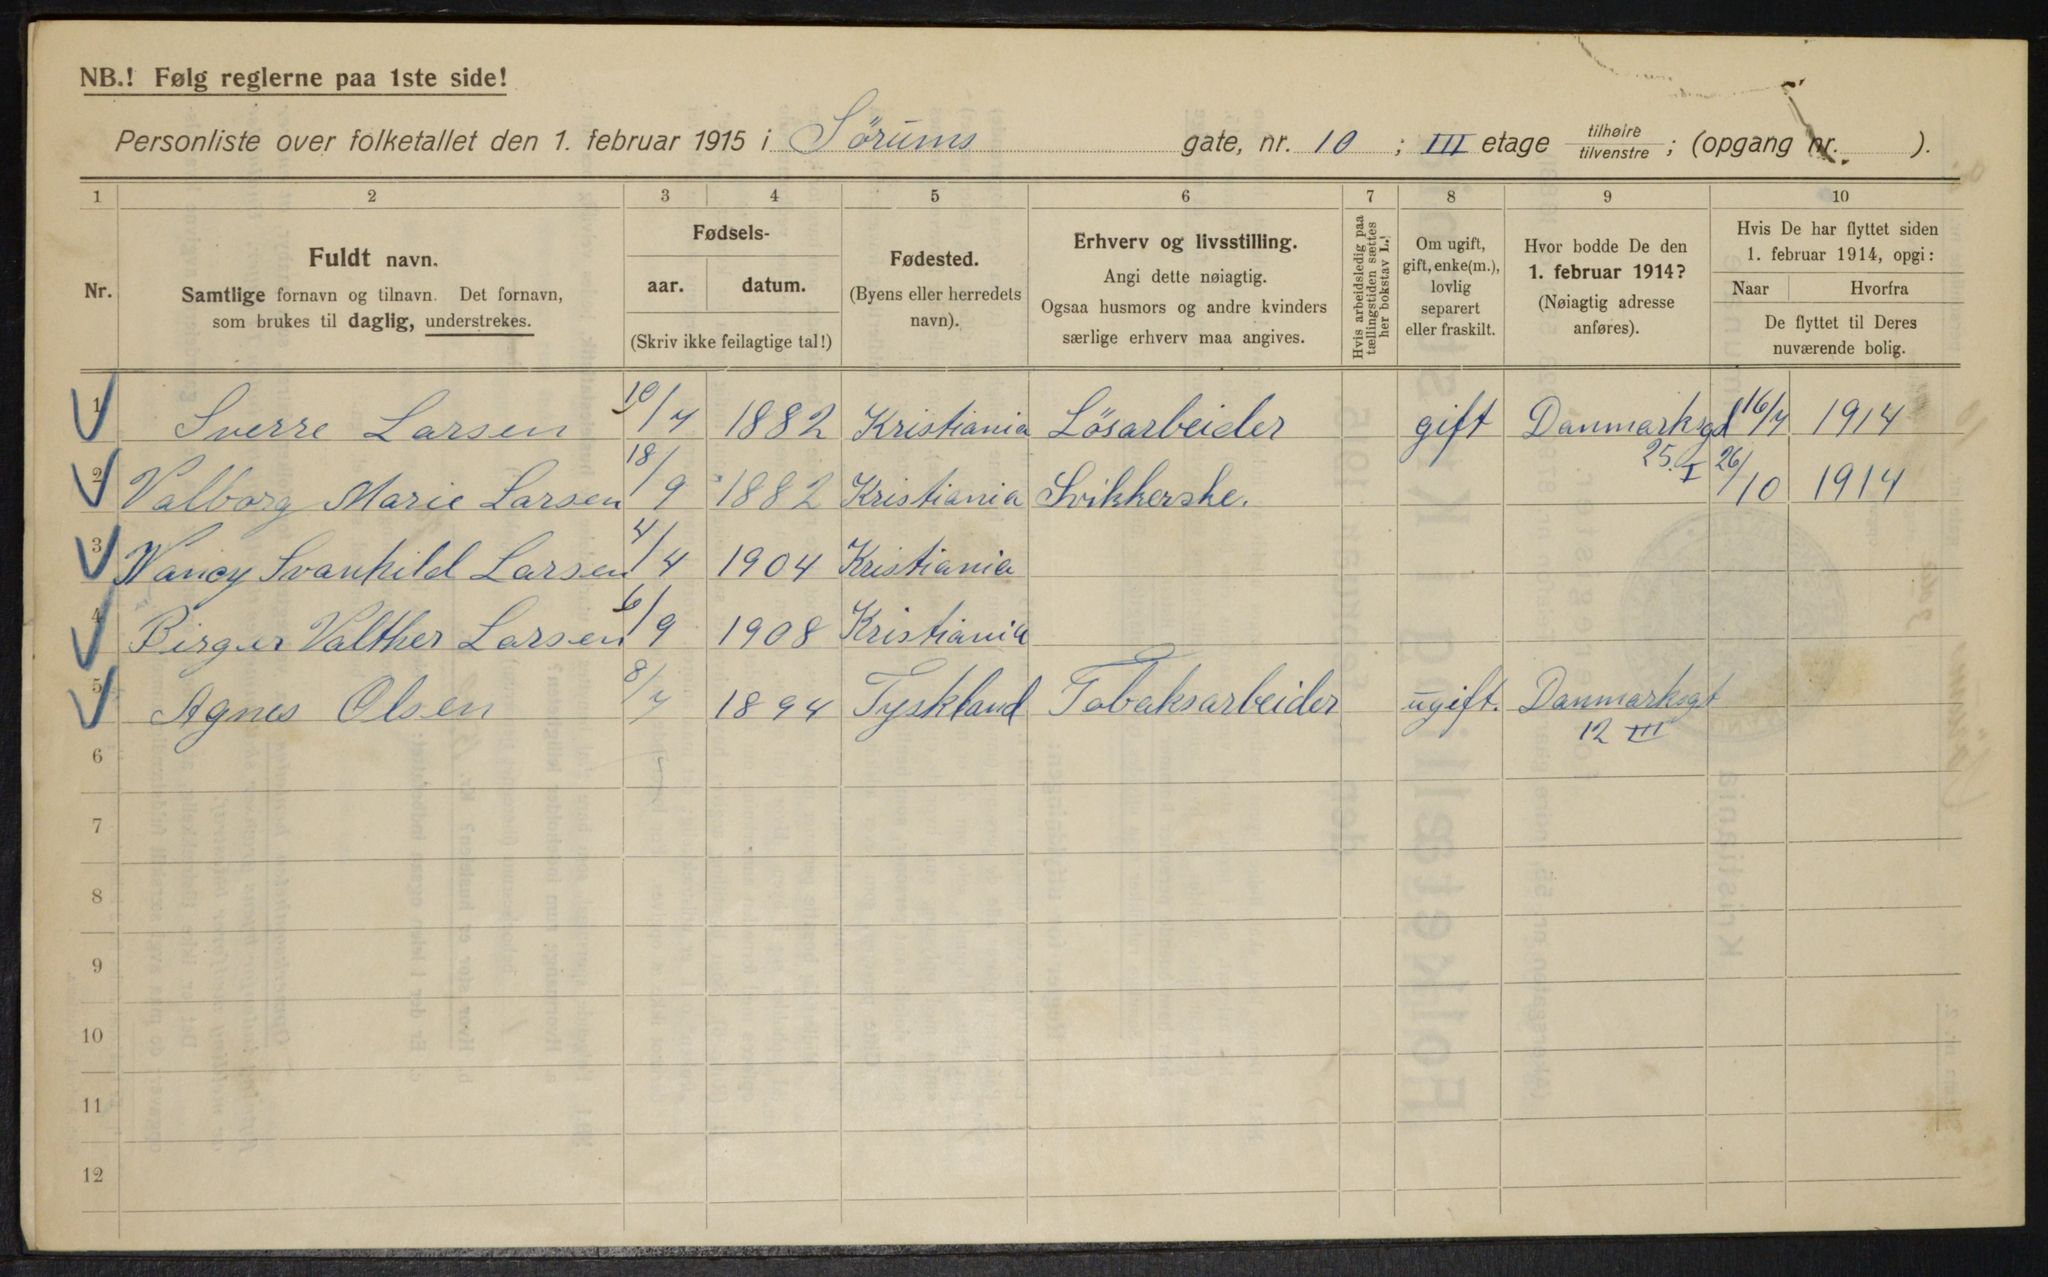 NB.! Følg reglerne paa 1ste side!
Personliste over folketallet den 1. februar 1915 i Sørums gate, nr. 10 ; III etage tilhøire tilvenstre ; (opgang nr. ).
1 2 3 4 5 6 7 8 9 10
Nr.
Fuldt navn.
Samtlige fornavn og tilnavn. Det fornavn,
som brukes til daglig, understrekes.
Fødsels-
aar. datum.
(Skriv ikke feilagtige tal!)
Fødested.
(Byens eller herredets
navn).
Erhverv og livsstilling.
Angi dette nøiagtig.
Ogsaa husmors og andre kvinders
særlige erhverv maa angives.
Hvis arbeidsledig paa
tællingstiden sættes
her bokstav L.!
Om ugift,
gift, enke(m.),
lovlig
separert
eller fraskilt.
Hvor bodde De den
1. februar 1914?
(Nøiagtig adresse
anføres).
Hvis De har flyttet siden
1. februar 1914, opgi:
Naar Hvorfra
De flyttet til Deres
nuværende bolig.
1 Sverre Larsen 10/7 1882 Kristiania Lösarbeider gift Danmarksgd 16/7 1914
25. I
2 Valborg Marie Larsen 18/9 1882 Kristiania 26/10 1914
3 Nancy Svanhild Larsen 4/4 1904 Kristiania
4 Birger Valther Larsen 6/9 1908 Kristiania
5 Agnes Olsen 8/7 1894 Tyskland Tobaksarbeider ugift. Danmarksgt
12 III
6
7
8
9
10
11
12